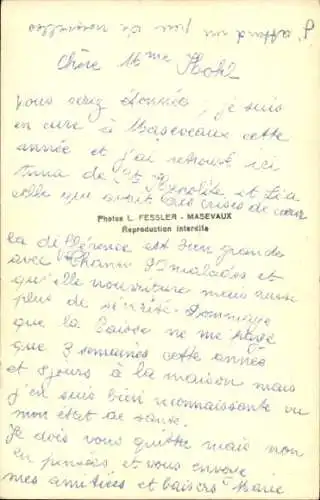 J'attend un peu de nouvelles
Chère Mme Kohl
vous serez étonnée, je suis
en cure à Maseveaux cette
année et j'ai retrouvé ici
Anna de St et Lia
celle qui avait des crises de cœur
Photos L. FESSLER - MASEVAUX
Reproduction interdite
la différence est bien grande
avec malades et
qu'elle nourriture mais aussi
plus de sécurité. Dommage
que la Caisse ne me paye
que 3 semaines cette année
et 8 jours à la maison mais
j'en suis bien reconnaissante vu
mon état de santé.
Je dois vous quitter mais non
en pensées, et vous envoie
mes amitiés et baisers Marie